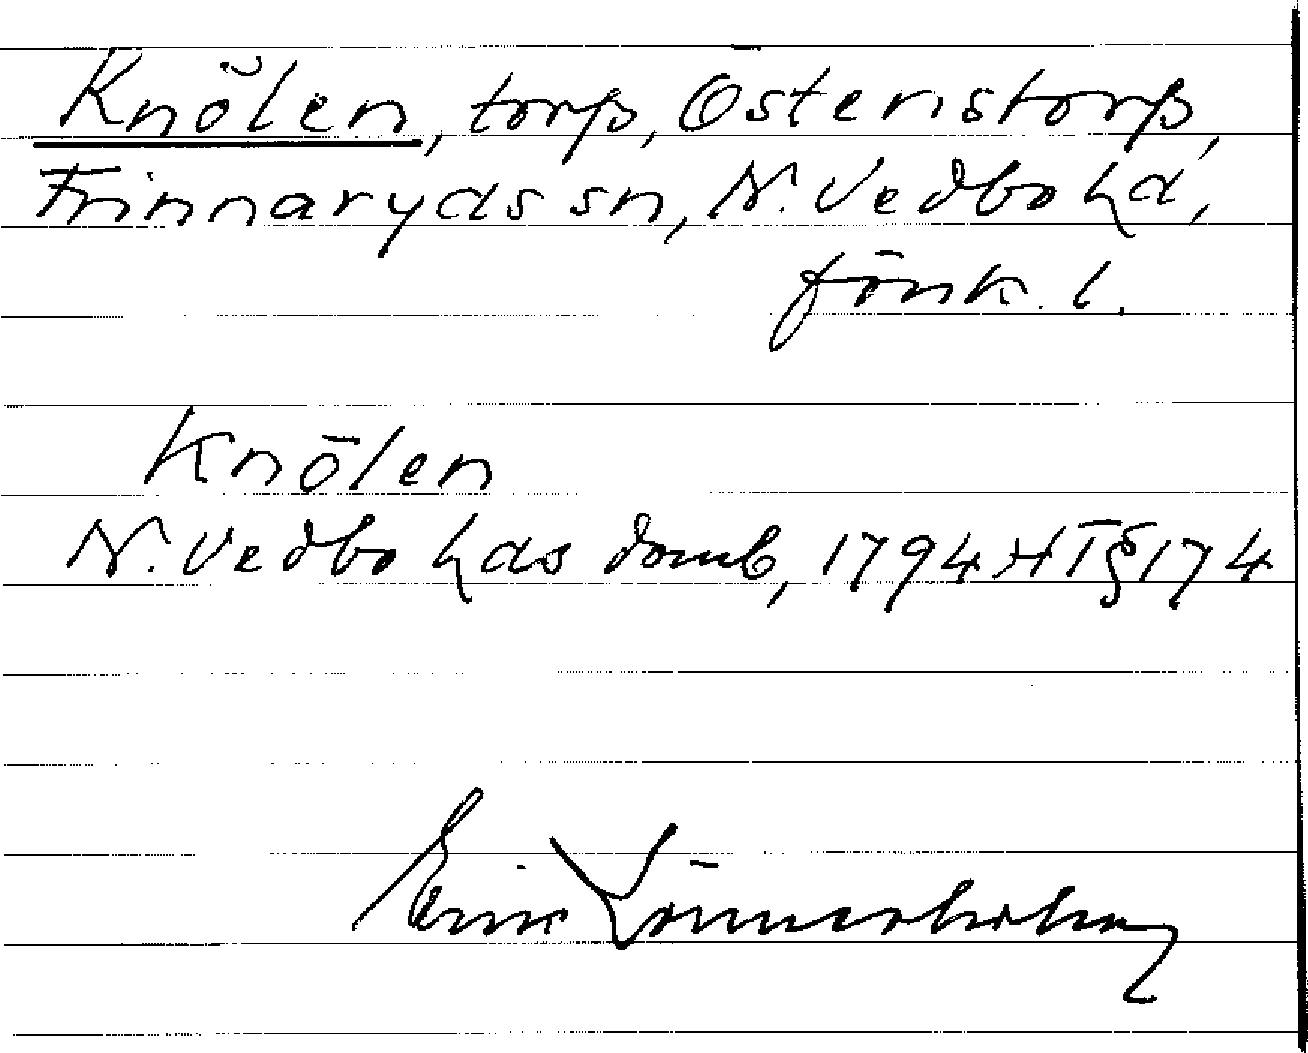 Knölen, torp, Östenstorp,
Frinnaryds sn, N. Vedbo hd,
Jönk. l.
Knölen
N. Vedbo hds domb, 1794 HT § 174
Eric Lönnerholm